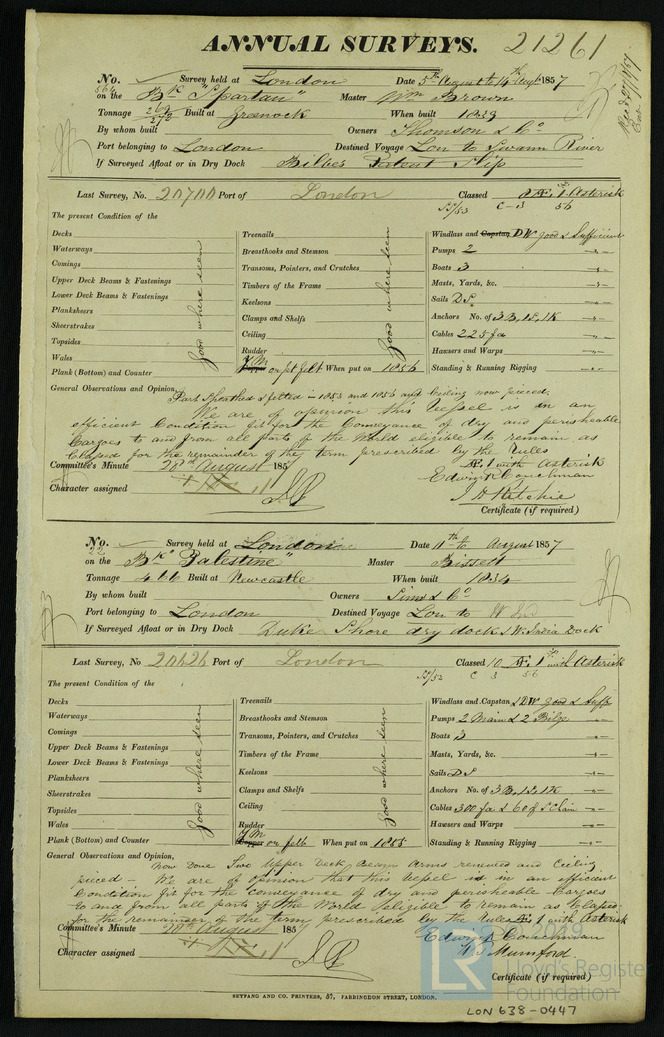 ANNUAL SURVEYS. 21261
No. Survey held at London Date 5th August to 14th Augt 1857
564 on the Bk "Spartan" Master Wm Brown
Tonnage Built at Greenock When built 1839
By whom built Owners Thomson & Co
Port belonging to London Destined Voyage Lon to Swann River
If Surveyed Afloat or in Dry Dock Bilbes Patent Slip
Last Survey, No. Port of London Classed Æ 1 Asterisk
55/53 C-3 56
The present Condition of the
Decks
Waterways
Comings
Upper Deck Beams & Fastenings
Lower Deck Beams & Fastenings
Planksheers
Sheerstrakes
Topsides
Wales
Plank (Bottom) and Counter
Good where seen
Treenails
Breasthooks and Stemson
Transoms, Pointers, and Crutches
Timbers of the Frame
Keelsons
Clamps and Shelfs
Ceiling
Rudder
Y.M. on pt felt When put on 1856
Good where seen
Windlass and Capstan DW good & Sufficient
Pumps 2
Boats 3
Masts, Yards, &c.
Sails D S.
Anchors No. of 3B, 1S, 1K
Cables 225 fa
Hawsers and Warps
Standing & Running Rigging
General Observations and Opinion, Part Sheathed & felted in 1853 and 1856 and Ceiling now pieced.
We are of opinion this Vessel is in an
efficient Condition fit for the Conveyance of dry and perishable
Cargoes to and from all parts of the World eligible to remain as
Classed for the remainder of the term prescribed by the Rules
Æ 1 with Asterisk
Committee's Minute 20th August 185
Edwin Couchman
Character assigned
J H Ritchie
Certificate (if required)
No. Survey held at London Date 11th to August 1857
22 on the Bk "Palestine" Master Bissett
Tonnage 466 Built at Newcastle When built 1834
By whom built Owners Sims & Co
Port belonging to London Destined Voyage Lon to W In
If Surveyed Afloat or in Dry Dock Duke Shore dry dock & W. India Dock
Last Survey, No Port of London Classed 10 Æ 1 with Asterisk
55/53 C 3 56
The present Condition of the
Decks
Waterways
Comings
Upper Deck Beams & Fastenings
Lower Deck Beams & Fastenings
Planksheers
Sheerstrakes
Topsides
Wales
Plank (Bottom) and Counter
Good where seen
Treenails
Breasthooks and Stemson
Transoms, Pointers, and Crutches
Timbers of the Frame
Keelsons
Clamps and Shelfs
Ceiling
Rudder
Y.M. on felt When put on 1855
Good where seen
Windlass and Capstan & DW good & Suff
Pumps 2 Main & 2 Bilge
Boats 3
Masts, Yards, &c.
Sails D S
Anchors No. of 3B, 1S, 1K
Cables 300 fa & 60 of S Chain
Hawsers and Warps
Standing & Running Rigging
General Observations and Opinion,
Now Done Two Upper Deck Beam Arms renewed and Ceiling
pieced - We are of opinion that this Vessel is in an efficient
Condition fit for the conveyance of dry and perishable Cargoes
to and from all parts of the World & eligible to remain as Classed
for the remainder of the term prescribed by the Rules Æ 1 with Asterisk
Committee's Minute 20th August 1857
Edwin Couchman
Character assigned
W Mumford
Certificate (if required)
SEYFANG AND CO. PRINTERS, 57, FARRINGDON STREET, LONDON.
LR © 2019
Lloyd's Register
Foundation
LON 638-0447